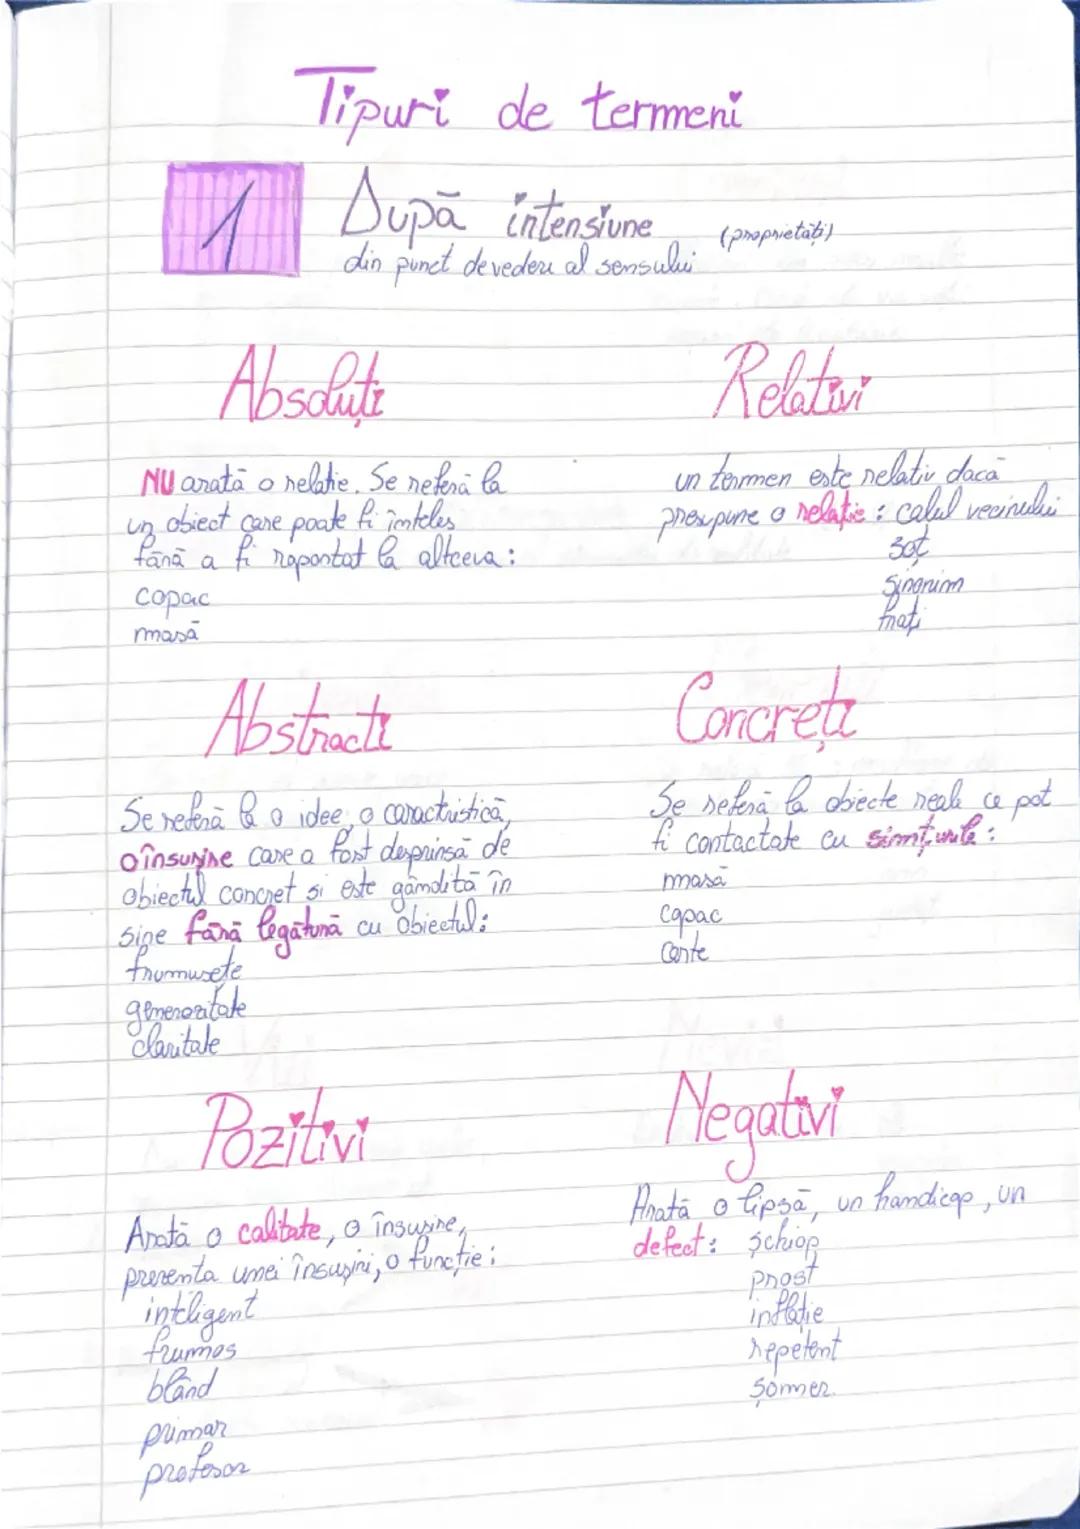 Tipuri de termeni
1
După intensiune (proprietăți)
din punct de vedere al sensului
Absoluți
NU arată o relație. Se referă la
un obiect care poate fi înteles
fără a fi raportat la altceva:
copac
masă
Relativi
un termen este relativ dacă
presupune o relație: calul vecinului
soț
sinonim
frați
Abstracti
Se referă la o idee, o caractristică,
o însușire care a fost desprinsă de
obiectul concret si este gândită în
sine fără legătură cu obiectul:
frumusețe
generozitate
claritate
Concreți
Se referă la obiecte reale ce pot
fi contactate cu simțurile:
masă
copac
carte
Pozitivi
Arată o calitate, o însușire,
prezenta unei însușiri, o funcție:
inteligent
frumos
blând
primar
profesor
Negativi
Arată o lipsă, un handicap, un
defect: șchiop
prost
inflație
repetent
șomer.